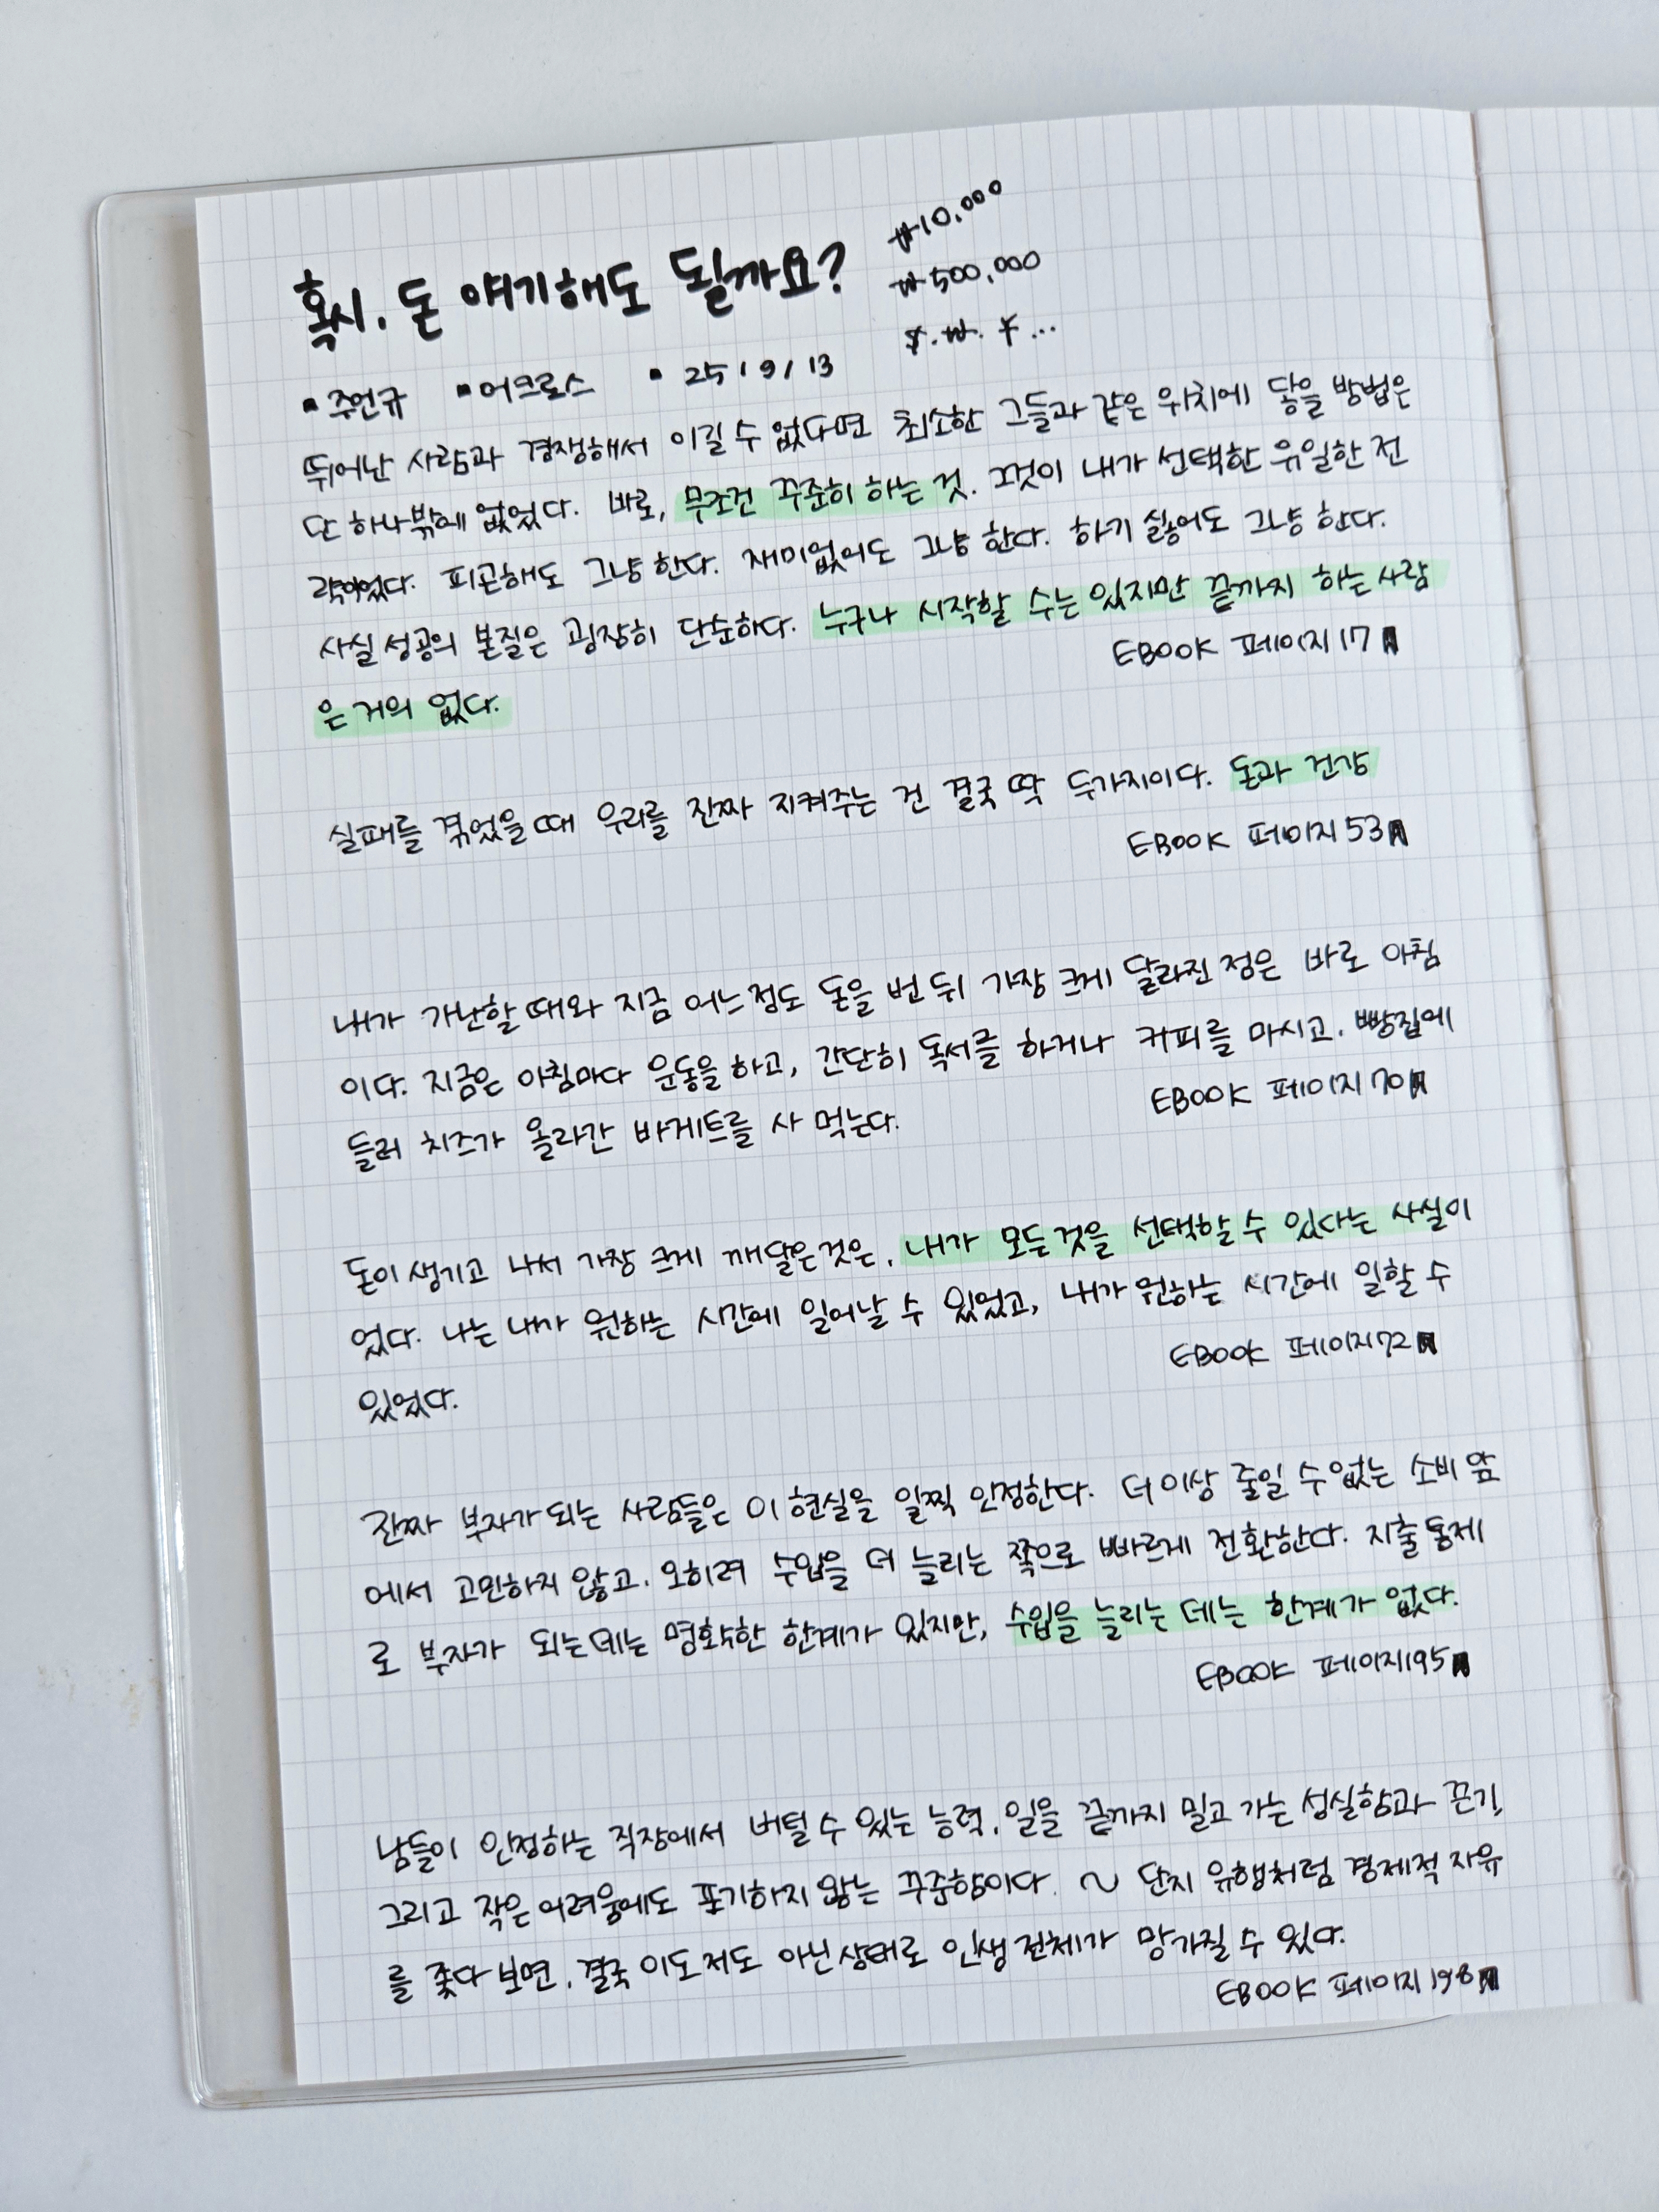 혹시, 돈 얘기해도 될까요?
₩10,000
₩500,000
$.₩.¥...
▪주언규 ▪어크로스 ▪25/9/13
뛰어난 사람과 경쟁해서 이길 수 없다면 최소한 그들과 같은 위치에 닿을 방법은
단 하나밖에 없었다. 바로, 무조건 꾸준히 하는 것. 그것이 내가 선택한 유일한 전
략이었다. 피곤해도 그냥 한다. 재미없어도 그냥 한다. 하기 싫어도 그냥 한다.
사실 성공의 본질은 굉장히 단순하다. 누구나 시작할 수는 있지만 끝까지 하는 사람
은 거의 없다.
EBOOK 페이지 17
실패를 겪었을 때 우리를 진짜 지켜주는 건 결국 딱 두가지이다. 돈과 건강
EBOOK 페이지 53
내가 가난할 때와 지금 어느정도 돈을 번 뒤 가장 크게 달라진 점은 바로 아침
이다. 지금은 아침마다 운동을 하고, 간단히 독서를 하거나 커피를 마시고, 빵집에
들러 치즈가 올라간 바게트를 사 먹는다.
EBOOK 페이지 70
돈이 생기고 나서 가장 크게 깨달은것은, 내가 모든 것을 선택할 수 있다는 사실이
었다. 나는 내가 원하는 시간에 일어날 수 있었고, 내가 원하는 시간에 일할 수
있었다.
EBOOK 페이지 72
진짜 부자가 되는 사람들은 이 현실을 일찍 인정한다. 더 이상 줄일 수 없는 소비 앞
에서 고민하지 않고, 오히려 수입을 더 늘리는 쪽으로 빠르게 전환한다. 지출 통제
로 부자가 되는데는 명확한 한계가 있지만, 수입을 늘리는 데는 한계가 없다.
EBOOK 페이지 195
남들이 인정하는 직장에서 버틸 수 있는 능력, 일을 끝까지 밀고 가는 성실함과 끈기,
그리고 작은 어려움에도 포기하지 않는 꾸준함이다. ~ 단지 유행처럼 경제적 자유
를 좇다 보면, 결국 이도 저도 아닌 상태로 인생 전체가 망가질 수 있다.
EBOOK 페이지 198